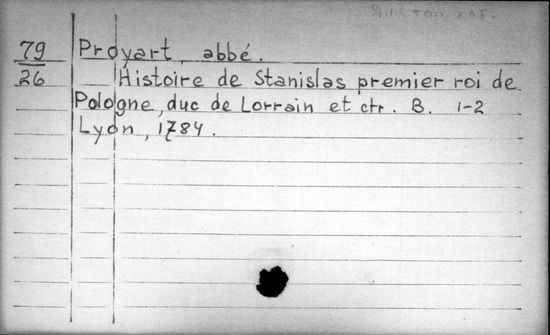 79 Proyart, abbé.
26 Histoire de Stanislas premier roi de
Pologne, duc de Lorrain et ctr. B. 1-2
Lyon, 1784.